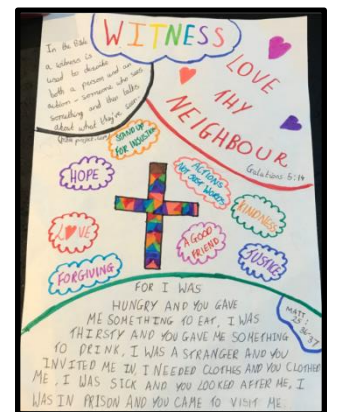 WITNESS
In the Bible
a witness is
used to describe
both a person and an
action - someone who sees
something and then talks
about what they've seen
LOVE
THY
NEIGHBOUR
Galations 5:14
STAND UP
FOR INJUSTICE
HOPE
ACTIONS
NOT JUST WORDS
KINDNESS
LOVE
A GOOD
FRIEND
JUSTICE
FORGIVING
FOR I WAS
HUNGRY AND YOU GAVE
ME SOMETHING TO EAT, I WAS
THIRSTY AND YOU GAVE ME SOMETHING
TO DRINK, I WAS A STRANGER AND YOU
INVITED ME IN, I NEEDED CLOTHES AND YOU CLOTHED
ME, I WAS SICK AND YOU LOOKED AFTER ME, I
WAS IN PRISON AND YOU CAME TO VISIT ME.
MATT.
25:
36-37